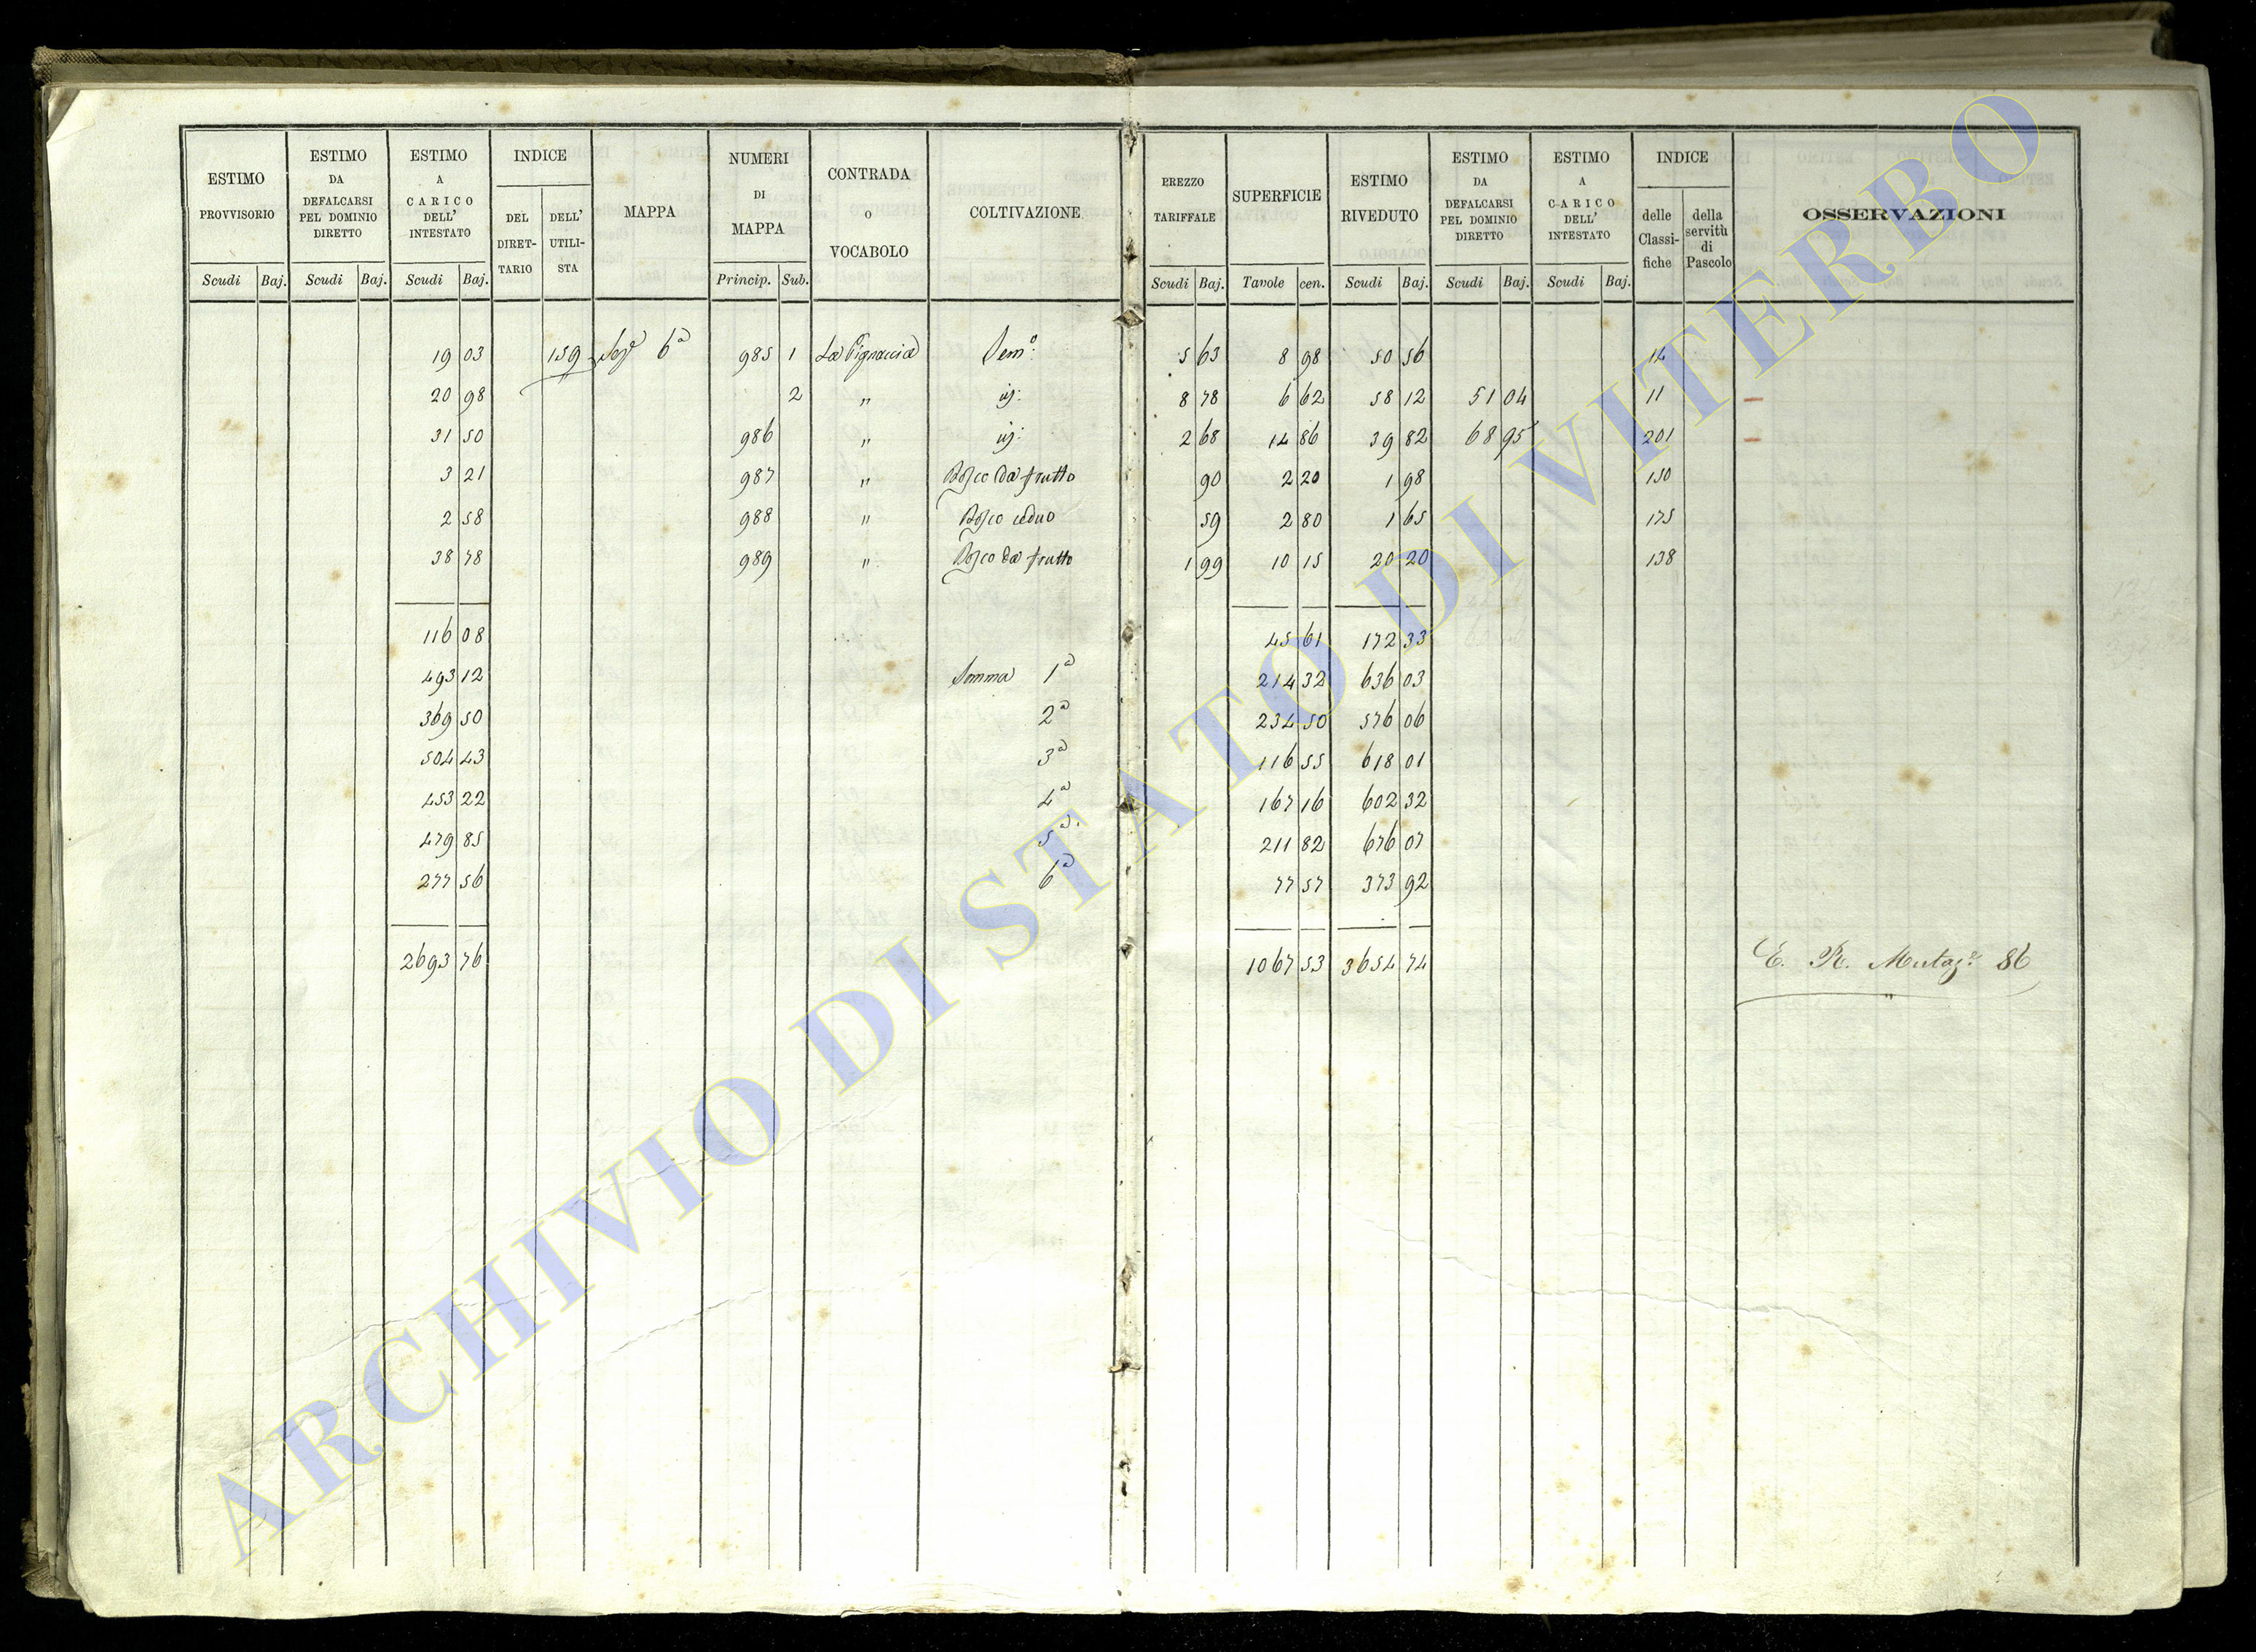 ESTIMO PROVVISORIO
ESTIMO DA DEFALCARSI PEL DOMINIO DIRETTO
ESTIMO A CARICO DELL' INTESTATO
INDICE
DEL DIRET-TARIO
DELL' UTILI-STA
MAPPA
NUMERI DI MAPPA
CONTRADA O VOCABOLO
COLTIVAZIONE
PREZZO TARIFFALE
SUPERFICIE
ESTIMO RIVEDUTO
ESTIMO DA DEFALCARSI PEL DOMINIO DIRETTO
ESTIMO A CARICO DELL' INTESTATO
INDICE
delle Classi-fiche
della servitù di Pascolo
OSSERVAZIONI
Scudi Baj. Scudi Baj. Scudi Baj. Princip. Sub. Scudi Baj. Tavole cen. Scudi Baj. Scudi Baj. Scudi Baj.
19 03 159 Sez.e 6a 985 1 La Pignaccia Sem.o 5 63 8 98 50 56 14
20 98 2 " id: 8 78 6 62 58 12 51 04 11
31 50 986 " id: 2 68 14 86 39 82 68 95 201
3 21 987 " Bosco da frutto 90 2 20 1 98 150
2 58 988 " Bosco ceduo 59 2 80 1 65 175
38 78 989 " Bosco da frutto 1 99 10 15 20 20 138
116 08 45 61 172 33
493 12 Somma 1a 214 32 636 03
369 50 2a 234 50 576 06
504 43 3a 116 55 618 01
453 22 4a 167 16 602 32
479 85 5a. 211 82 676 07
277 56 6a 77 57 373 92
2693 76 1067 53 3654 74 E. R. Mutaz.e 86
ARCHIVIO DI STATO DI VITERBO